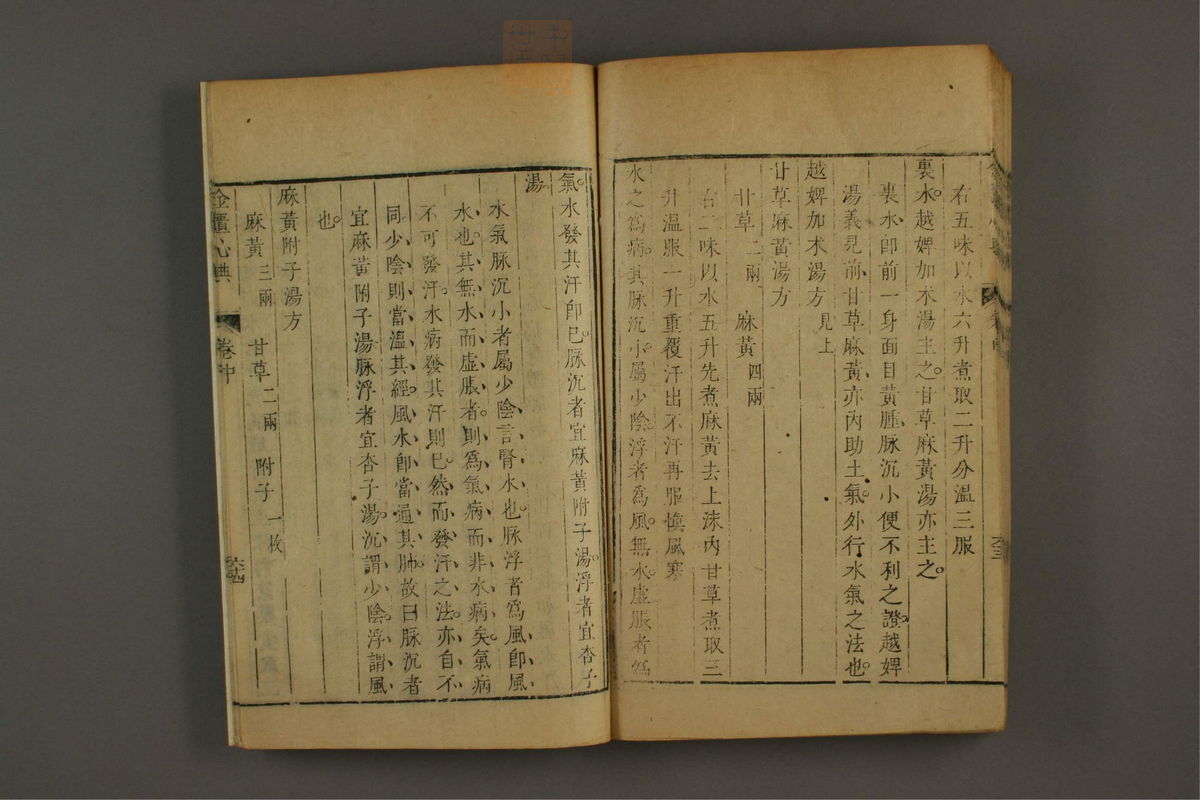 右五味以水六升煮取二升分溫三服
裏水越婢加术湯主之甘草麻黃湯亦主之
裏水卽前一身面目黃腫脉沉小便不利之證越婢
湯義見前甘草麻黃亦內助土氣外行水氣之法也
越婢加术湯方 見上
甘草麻黃湯方
甘草 二兩 麻黃 四兩
右二味以水五升先煮麻黃去上沫內甘草煮取三
升溫服一升重覆汗出不汗再服慎風寒
水之爲病其脉沉小屬少陰浮者爲風無水虛脹者爲
氣水發其汗卽已脉沉者宜麻黃附子湯浮者宜杏子
湯
水氣脉沉小者屬少陰言腎水也脉浮者爲風卽風
水也其無水而虛脹者則爲氣病而非水病矣氣病
不可發汗水病發其汗則已然而發汗之法亦自不
同少陰則當溫其經風水卽當通其肺故曰脉沉者
宜麻黃附子湯脉浮者宜杏子湯沉謂少陰浮謂風
也
麻黃附子湯方
麻黃 三兩 甘草 二兩 附子 一枚
金匱心典 卷中 六十四